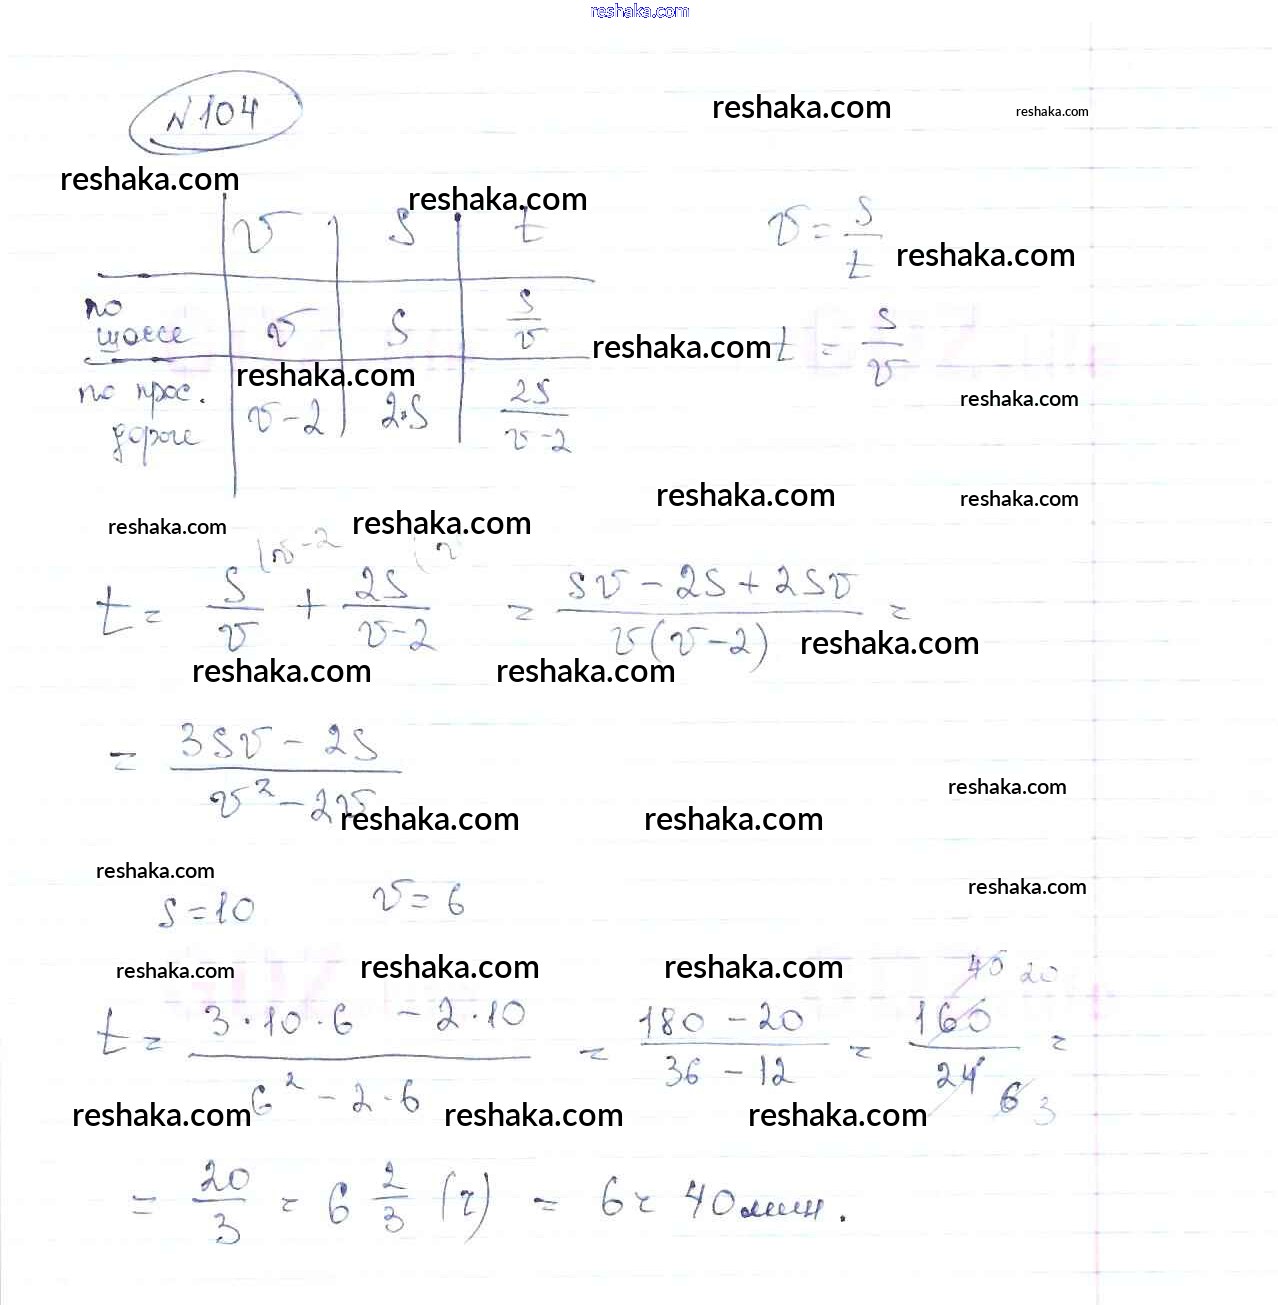 reshaka.com
N 104
reshaka.com
reshaka.com
reshaka.com
reshaka.com
v s t
v = s/t
reshaka.com
по шоссе v s s/v
reshaka.com
t = s/v
reshaka.com
reshaka.com
по прос. дороге v-2 2·s 2s/(v-2)
reshaka.com
reshaka.com
reshaka.com
reshaka.com
t = s/v (v-2 + 2s/(v-2) (v = (sv - 2s + 2sv)/(v(v-2)) =
reshaka.com
reshaka.com
reshaka.com
= (3sv - 2s)/(v² - 2v)
reshaka.com
reshaka.com
reshaka.com
reshaka.com
reshaka.com
s = 10 v = 6
reshaka.com
reshaka.com
reshaka.com
t = (3·10·6 - 2·10)/(6² - 2·6) = (180 - 20)/(36 - 12) = 160/24 40 20 6 3 =
reshaka.com
reshaka.com
reshaka.com
= 20/3 = 6 2/3 (ч) = 6ч 40мин.